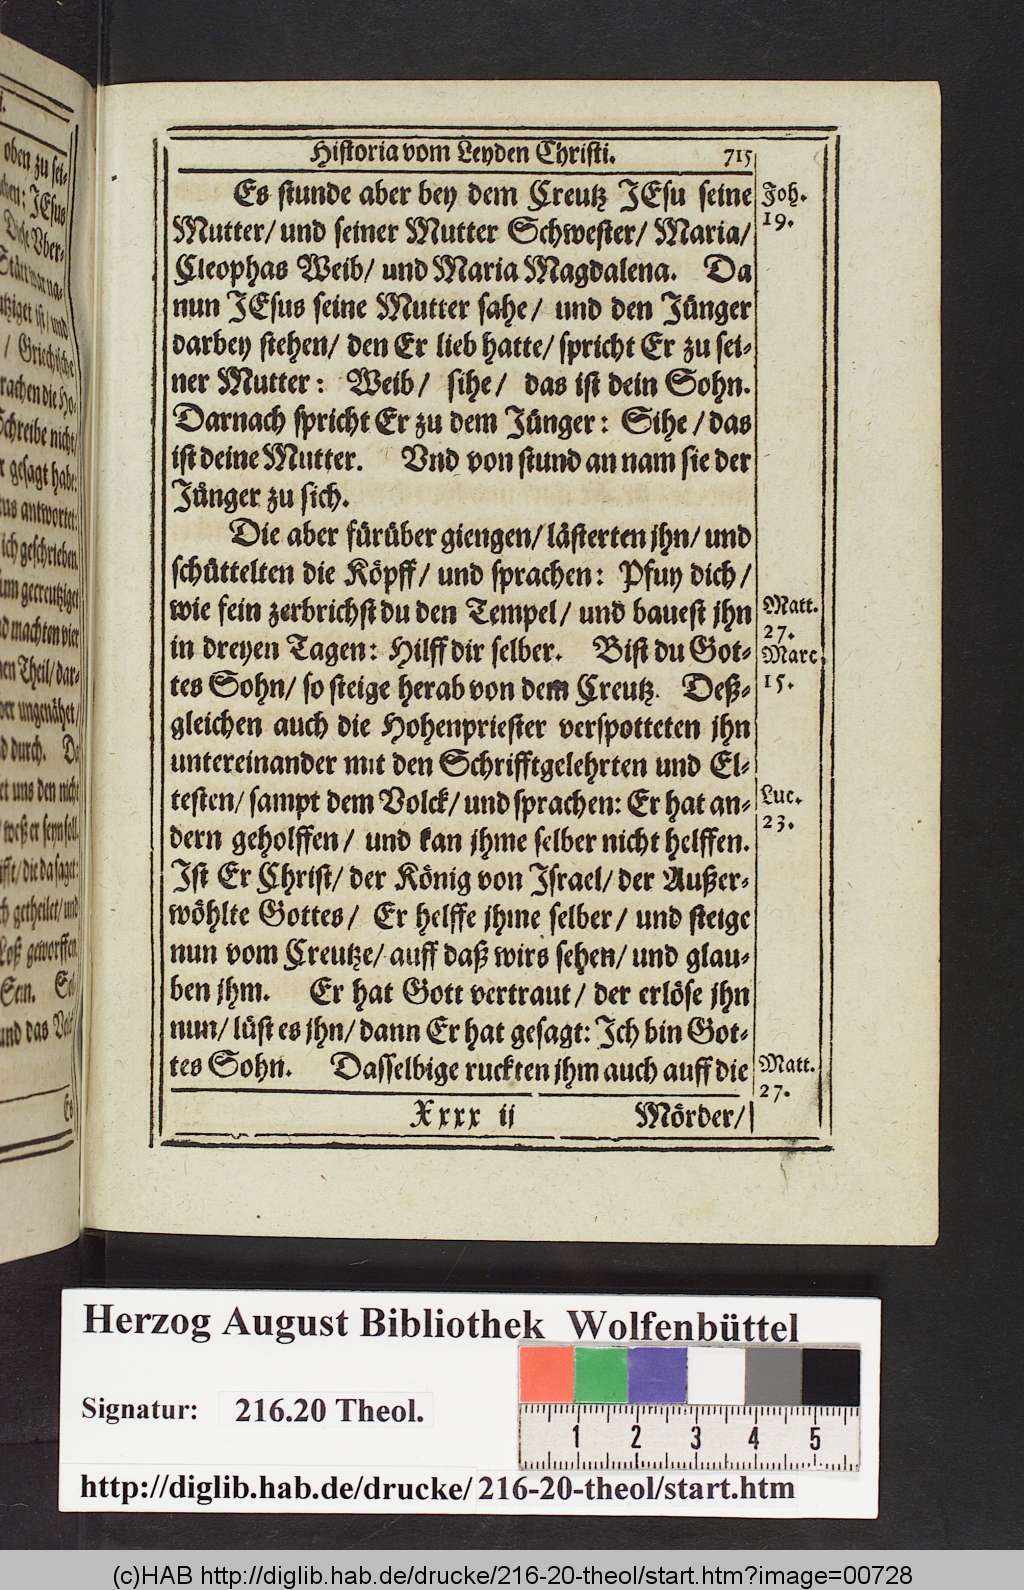 oben zu sei-
Historia vom Leyden Christi. 715
Es stunde aber bey dem Creutz JEsu seine
Joh.
19.
Mutter/ und seiner Mutter Schwester/ Maria/
Cleophas Weib/ und Maria Magdalena. Da
nun JEsus seine Mutter sahe/ und den Jünger
darbey stehen/ den Er lieb hatte/ spricht Er zu sei-
ner Mutter: Weib/ sihe/ das ist dein Sohn.
Darnach spricht Er zu dem Jünger: Sihe/ das
ist deine Mutter. Vnd von stund an nam sie der
Jünger zu sich.
Die aber fürüber giengen/ lästerten jhn/ und
schüttelten die Köpff/ und sprachen: Pfuy dich/
wie fein zerbrichst du den Tempel/ und bauest jhn
Matt.
27.
in dreyen Tagen: Hilff dir selber. Bist du Got-
Marc.
15.
tes Sohn/ so steige herab von dem Creutz. Deß-
gleichen auch die Hohenpriester verspotteten jhn
untereinander mit den Schrifftgelehrten und El-
testen/ sampt dem Volck/ und sprachen: Er hat an-
Luc.
23.
dern geholffen/ und kan jhme selber nicht helffen.
Ist Er Christ/ der König von Israel/ der Außer-
wöhlte Gottes/ Er helffe jhme selber/ und steige
nun vom Creutze/ auff daß wirs sehen/ und glau-
ben jhm. Er hat Gott vertraut/ der erlöse jhn
nun/ lüst es jhn/ dann Er hat gesagt: Ich bin Got-
tes Sohn. Dasselbige ruckten jhm auch auff die
Matt.
27.
Xxxx ii Mörder/
JEsus
Diese Vber-
ist/ und
/ Griechische
die Ho-
Schreibe nicht/
gesagt habe:
antwortet:
ich geschrieben
gecreutziget
machten vier
Theil/ dar-
ungenähet/
durch. Da
uns den nicht
weß er seyn soll.
die da saget:
getheilet/ und
Loß geworffen.
und das Volck
Es
Herzog August Bibliothek Wolfenbüttel
Signatur: 216.20 Theol.
1 2 3 4 5
http://diglib.hab.de/drucke/ 216-20-theol/start.htm
(c)HAB http://diglib.hab.de/drucke/216-20-theol/start.htm?image=00728